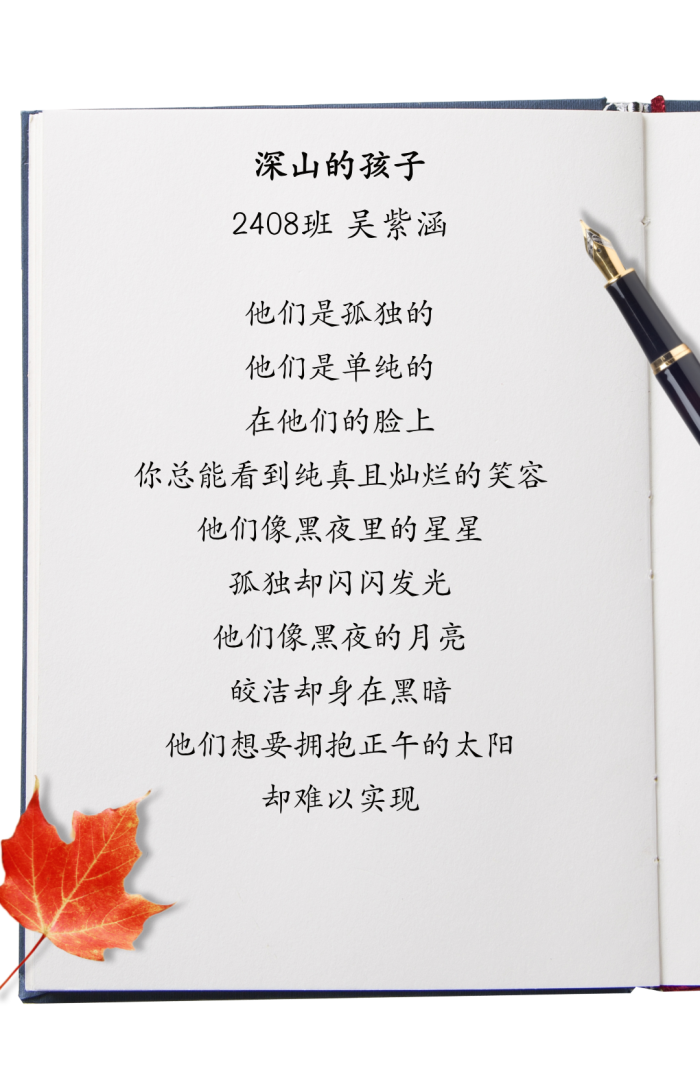 深山的孩子
2408班 吴紫涵
他们是孤独的
他们是单纯的
在他们的脸上
你总能看到纯真且灿烂的笑容
他们像黑夜里的星星
孤独却闪闪发光
他们像黑夜的月亮
皎洁却身在黑暗
他们想要拥抱正午的太阳
却难以实现